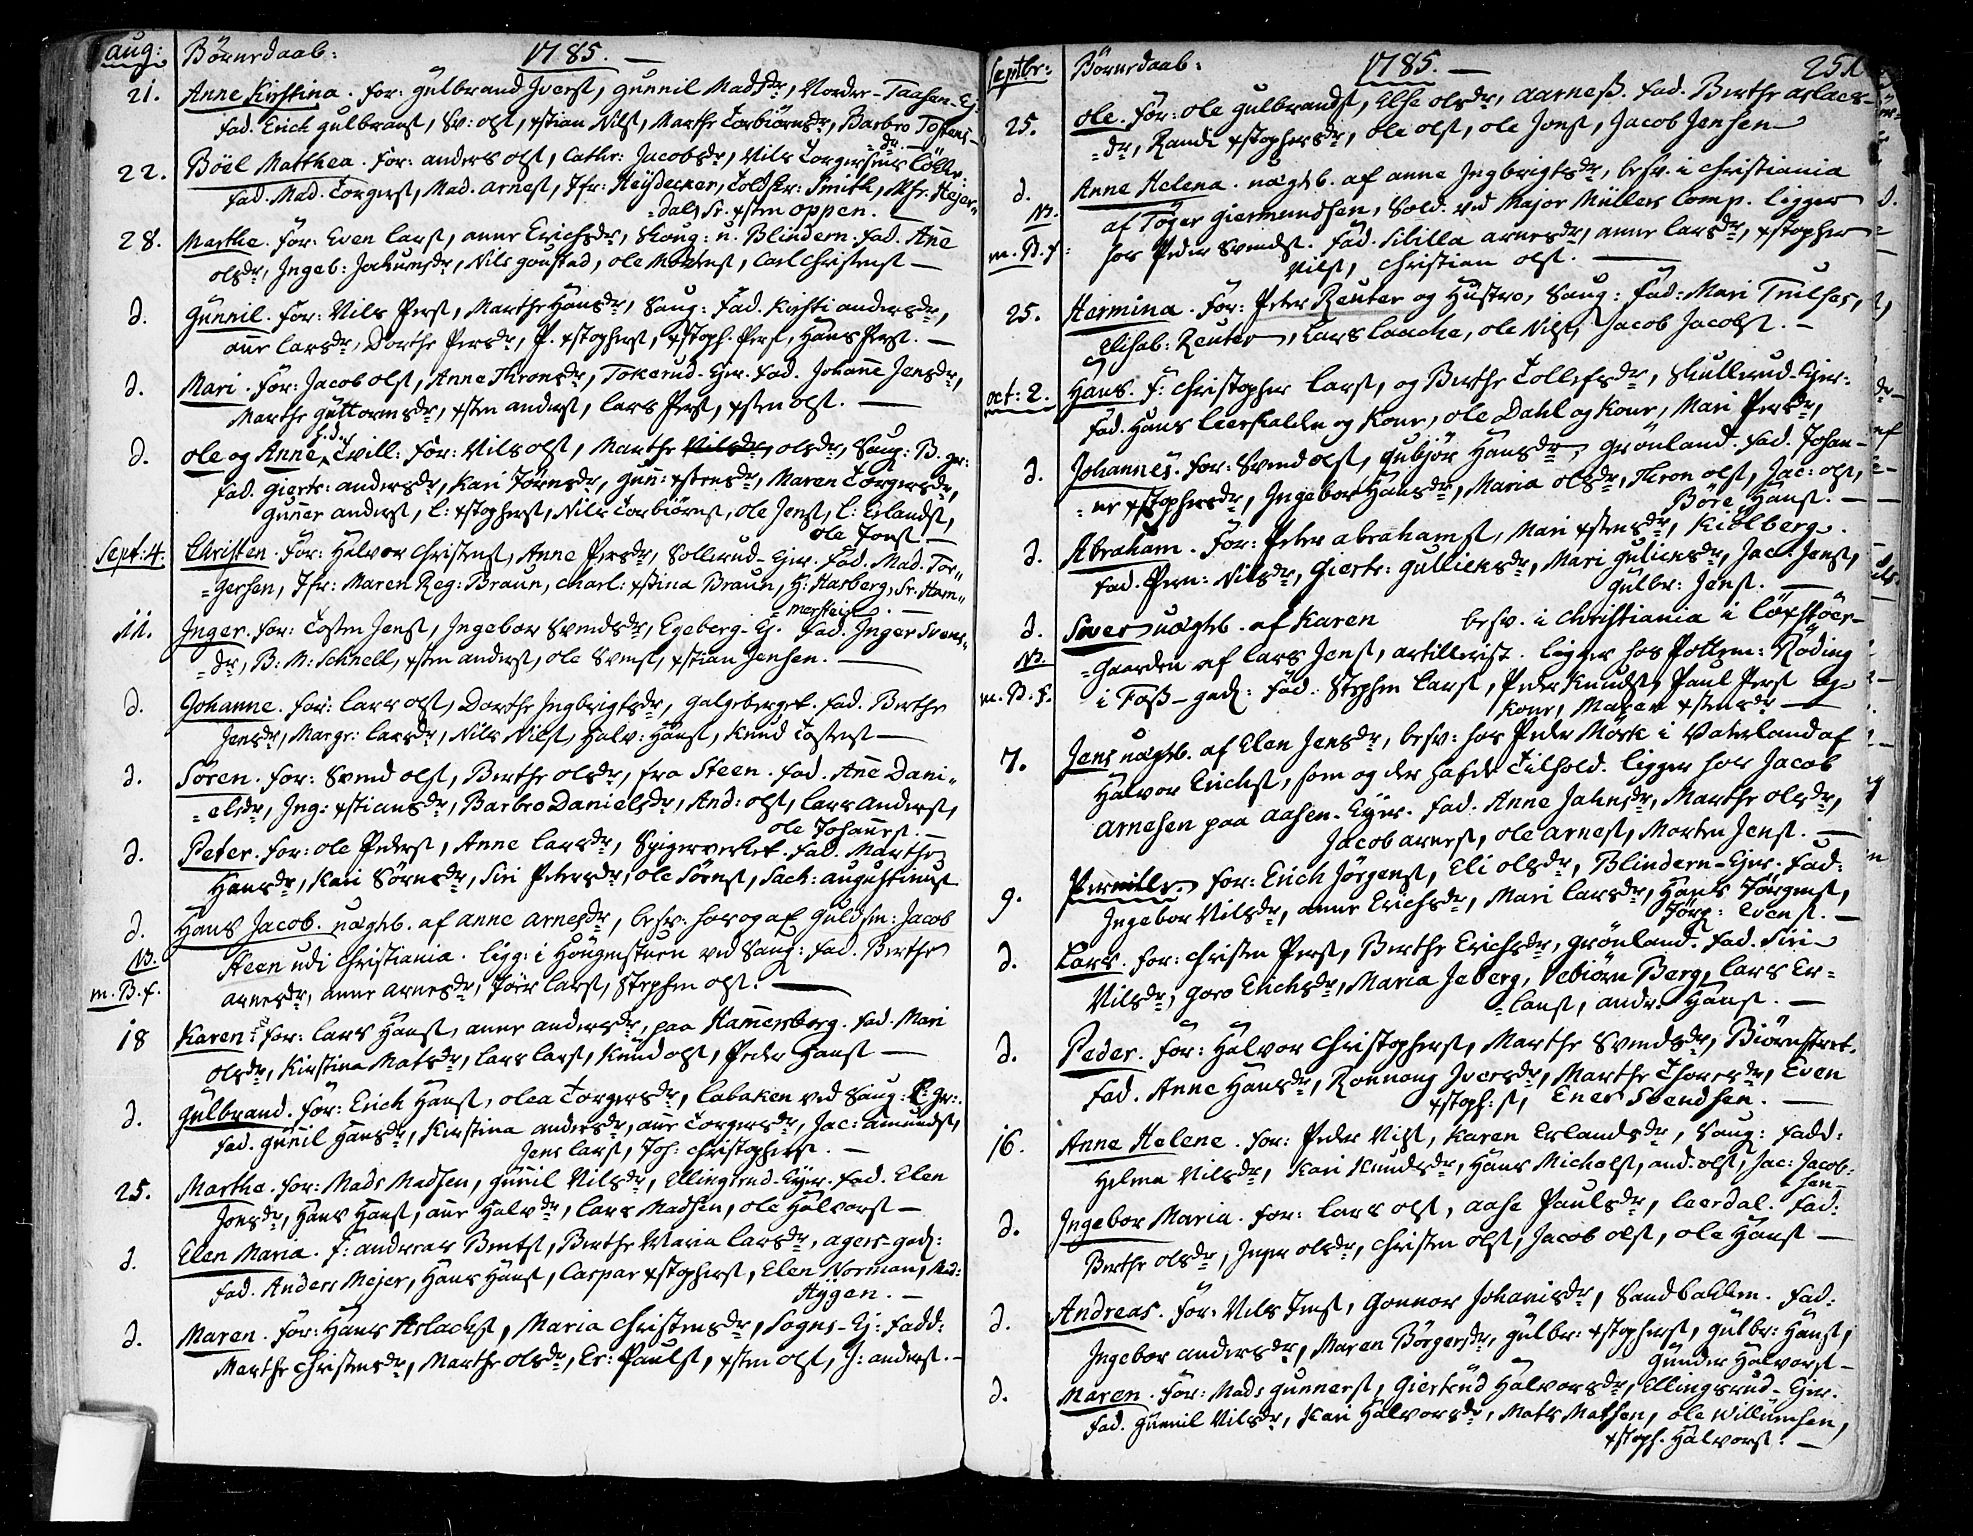 aug: Börnedaab: 1785.
21. Anne Kirstina. For: Gulbrand Iverst, Gunnil Madsdr, Nordre-Taasen-Ej.
Fad. Erich Gulbranst, Sv: olst, xstian Nilst, Marthe Torbiörnsdr, Barbro Tostens-
=dr.
22. Böel Matthea. For: anders olst, Cathr: Jacobsdr, Nils Torgersens
Fad. Mad. Torgerst, Mad. Arnest, Jfr: Heydecker, Told Sr: Smith, Msr. Hejer-
=dal, Sr. xsten oppen.
28. Marthe. For: Even Larst, anne Erichsdr, Skoug: u. Blindern. Fad. Ane
olsdr, Ingeb: Jochumsdr, Nils goustad, ole Mortenst, Carl Christenst
d. Gunnil. For: Nils Perst, Marthe Hansdr, Saug: Fad. Kirsti andersdr,
ane Larsdr, Dorthe Persdr, P. xstopherst, xstoph. Perst, Hans Perst.
d. Mari. For: Jacob olst, Anne Thronsdr, Tokerud-Ejer. Fad. Johane Jensdr,
Marthe Guttormsdr, xsten anderst, Lars Perst, xsten olst.
d. ole og Anne, Tvill: For: Nils olst, Marthe Nilsdr, olsdr, Saug: B. gr:
Fad. Giertr: andersdr, Kari Jörnsdr, Gun: xstensdr, Maren Torgersdr,
Guner anderst, L: xstopherst, Nils Torbiörnst, ole Jenst, L: Erlandst,
ole Jonst
Sept: 4. Christen. For: Halvor Christenst, Anne Persdr, Sollerud-Ejer. Fad. Mad. Tor-
=gersen, Jfr: Maren Reg: Braun, Charl: xstina Braun, H: Harberg, Sr. Ham-
=merstein.
11. Inger. For: Tosten Jenst, Ingebor Svendsdr, Egeberg-Ej. Fad. Inger Svens-
=dr, B: M: Schnell, xsten anderst, ole Svenst, xstian Jensen.
d. Johanne. For: Lars olst, Dorthe Ingbrigtsdr, Galgeberget. Fad. Berthe
Jensdr, Margr: Larsdr, Nils Nilst, Halv: Hanst, Knud Tostenst
d. Sören. For: Svend olst, Berthe olsdr, fra Steen. Fad. Ane Dani-
=elsdr, Ing: xstiansdr, Barbro Danielsdr, And: olst, Lars anderst,
ole Johanest.
d. Peter. For: ole Pederst, Anne Larsdr, Spigerverket. Fad. Marthe
Hansdr, Kari Sörnsdr, Siri Petersdr, ole Sörnst, Sach: augustinust
d. Hans Jacob. uægteb. af anne Arnesdr, besv: hos og af Guldsm: Jacob
NB. Steen udi Christiania. ligg: i Höugenstuen ved Saug: Fad. Berthe
m. B. f. arnesdr, anne arnesdr, Siver Larst, Stephen olst.
18 Karen. For: Lars Hanst, anne andersdr, paa Hamersborg. Fad. Mari
olsdr, Kirstina Matsdr, Lars Larst, Knud olst, Peder Hanst
d. Gulbrand. For: Erich Hanst, olea Torgersdr, Labaken ved Saug: E. Gr:
Fad. Gunil Hansdr, Kirstina andersdr, ane Torgersdr, Jac: amundst,
Jens Larst, Joh: Christopherst.
25. Marthe. For: Mads Madsen, Gunil Nilsdr, Ellingsrud-Ejer. Fad. Elen
Jonsdr, Hans Hanst, ane Halvdr, Lars Madsen, ole Halvorst
d. Elen Maria. F: andreas Bentst, Berthe Maria Larsdr, agers-gad:
Fad. Anders Mejer, Hans Hanst, Caspar xstopherst, Elen Norman, Mad:
Hygen.
d. Maren. For: Hans Aslachst, Maria Christensdr, Sogns-Ej: Fadd:
Marthe Christensdr, Marthe olsdr, Er: Paulst, xsten olst, J: anderst.
Septbr: Börnedaab: 1785. 251
25. ole. For: ole Gulbrandst, Else olsdr, Aarness. Fad. Berthe Aslacs-
=dr, Randi xstophersdr, ole olst, ole Jonst, Jacob Jensen
d. Anne Helena. uægteb. af anne Ingbrigtsdr, besv. i Christiania
NB. af Töger Giermundsen, Sold. ved Major Müllers Comp. ligger
m. B. f. hos Peder Svendst. Fad. Sibilla arnesdr, anne Larsdr, xstopher
Nilst, Christian olst.
25. Hermina. For: Peter Reuter og Hustro, Saug: Fad: Mari Truilses,
Elisab: Reuter, Lars Laache, ole Nilst, Jacob Jacobst.
oct: 2. Hans. F: Christopher Larst, og Berthe Tollefsdr, Skullerud-Ejer.
Fad. Hans Leerskalden og Kone, ole Dahl og Kone, Mari Persdr,
d. Johannes. For: Svend olst, Gubjör Hansdr, Grönland. Fad. Johan-
=ne xstophersdr, Ingebor Hansdr, Maria olsdr, Thron olst, Jac: olst,
Böre Hanst.
d. Abraham. For: Peter Abrahamst, Mari xstensdr, Kiölberg.
Fad. Pern: Nilsdr, Giertr: Gulliksdr, Mari Guliksdr, Jac: Jenst,
Gulbr: Jenst.
d. Siver uægteb. af Karen besv. i Christiania i Löxstöer-
NB. =gaarden af Lars Jenst, artillerist. ligger hos Pottem: Röding
m. B. f. i Foss-gad: Fad: Stephen Larst, Peder Knudst, Paul Perst og
Kone, Maren xstensdr
7. Jens uægteb. af Elen Jensdr, besv: hos Peder Mörk i Vaterland af
Halvor Erichst, som og der hafde Tilhold. ligger hos Jacob
Arnesen paa Aasen-Ejer. Fad. Anne Jahnsdr, Marthe olsdr,
Jacob arnest, ole arnest, Morten Jenst.
9. Pernille. For: Erich Jörgenst, Eli olsdr, Blindern-Ejer. Fad:
Ingebor Nilsdr, anne Erichsdr, Mari Larsdr, Hans Jörgenst,
Jörg: Evenst.
d. Lars. For: Christen Perst, Berthe Erichsdr, Grönland. Fad. Siri
Nilsdr, Goro Erichsdr, Maria Jeberg, Tebiörn Berg, Lars Er-
=lanst, andr. Hanst.
d. Peder. For: Halvor Christopherst, Marthe Svendsdr, Biörnstret.
Fad. Anne Hansdr, Ronnoug Iversdr, Marthe Thoresdr, Even
xstoph:st, Ener Svendsen.
16. Anne Helene. For: Peder Nilst, Karen Erlandsdr, Saug: Fadd:
Helena Nilsdr, Kari Knudsdr, Hans Michelst, and. olst, Jac: Jacob-
sen
d. Ingebor Maria. For: Lars olst, Aase Paulsdr, Leerdal. Fad:
Berthe olsdr, Inger olsdr, Christen olst, Jacob olst, ole Hanst
d. Andreas. For: Nils Jenst, Gonnor Johanisdr, Sandbakken. Fad:
Ingebor andersdr, Maren Börgersdr, Gulbr: xstopherst, Gulbr: Hanst,
Gunder Halvorst
d. Maren. For: Mads Gunnerst, Giertrud Halvorsdr, Ellingsrud-Ejer.
Fad. Gunnil Nilsdr, Kari Halvorsdr, Mats Matsen, ole Willumsen,
xstoph. Halvorst.